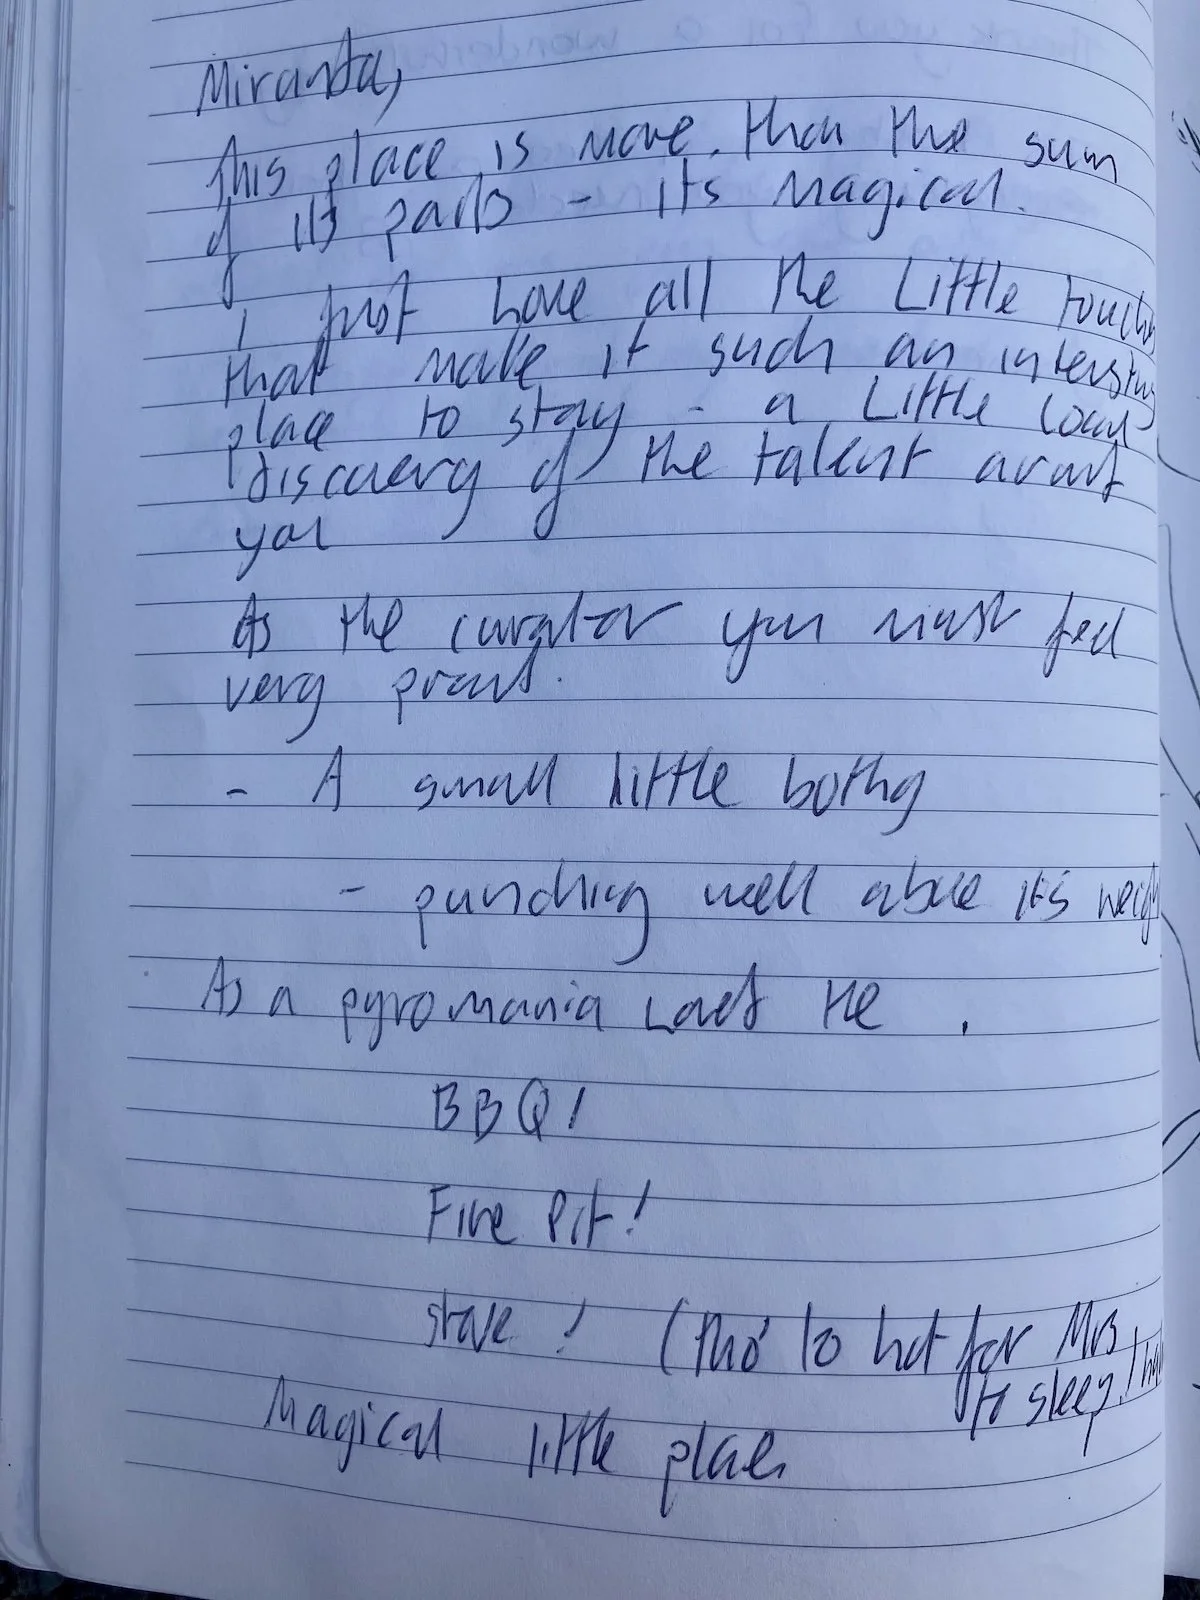 Miranda,
This place is more than the sum
of its parts - its magical.
I just love all the little touches
that make it such an
place to stay - a little local
discovery of the talent around
you
As the curator you must feel
very proud.
- A small little bothy
- punching well above it's weigh
As a pyromania Loved the
BBQ!
Fire Pit!
stove! (tho' to hot for Mrs
to sleep,
Magical little place